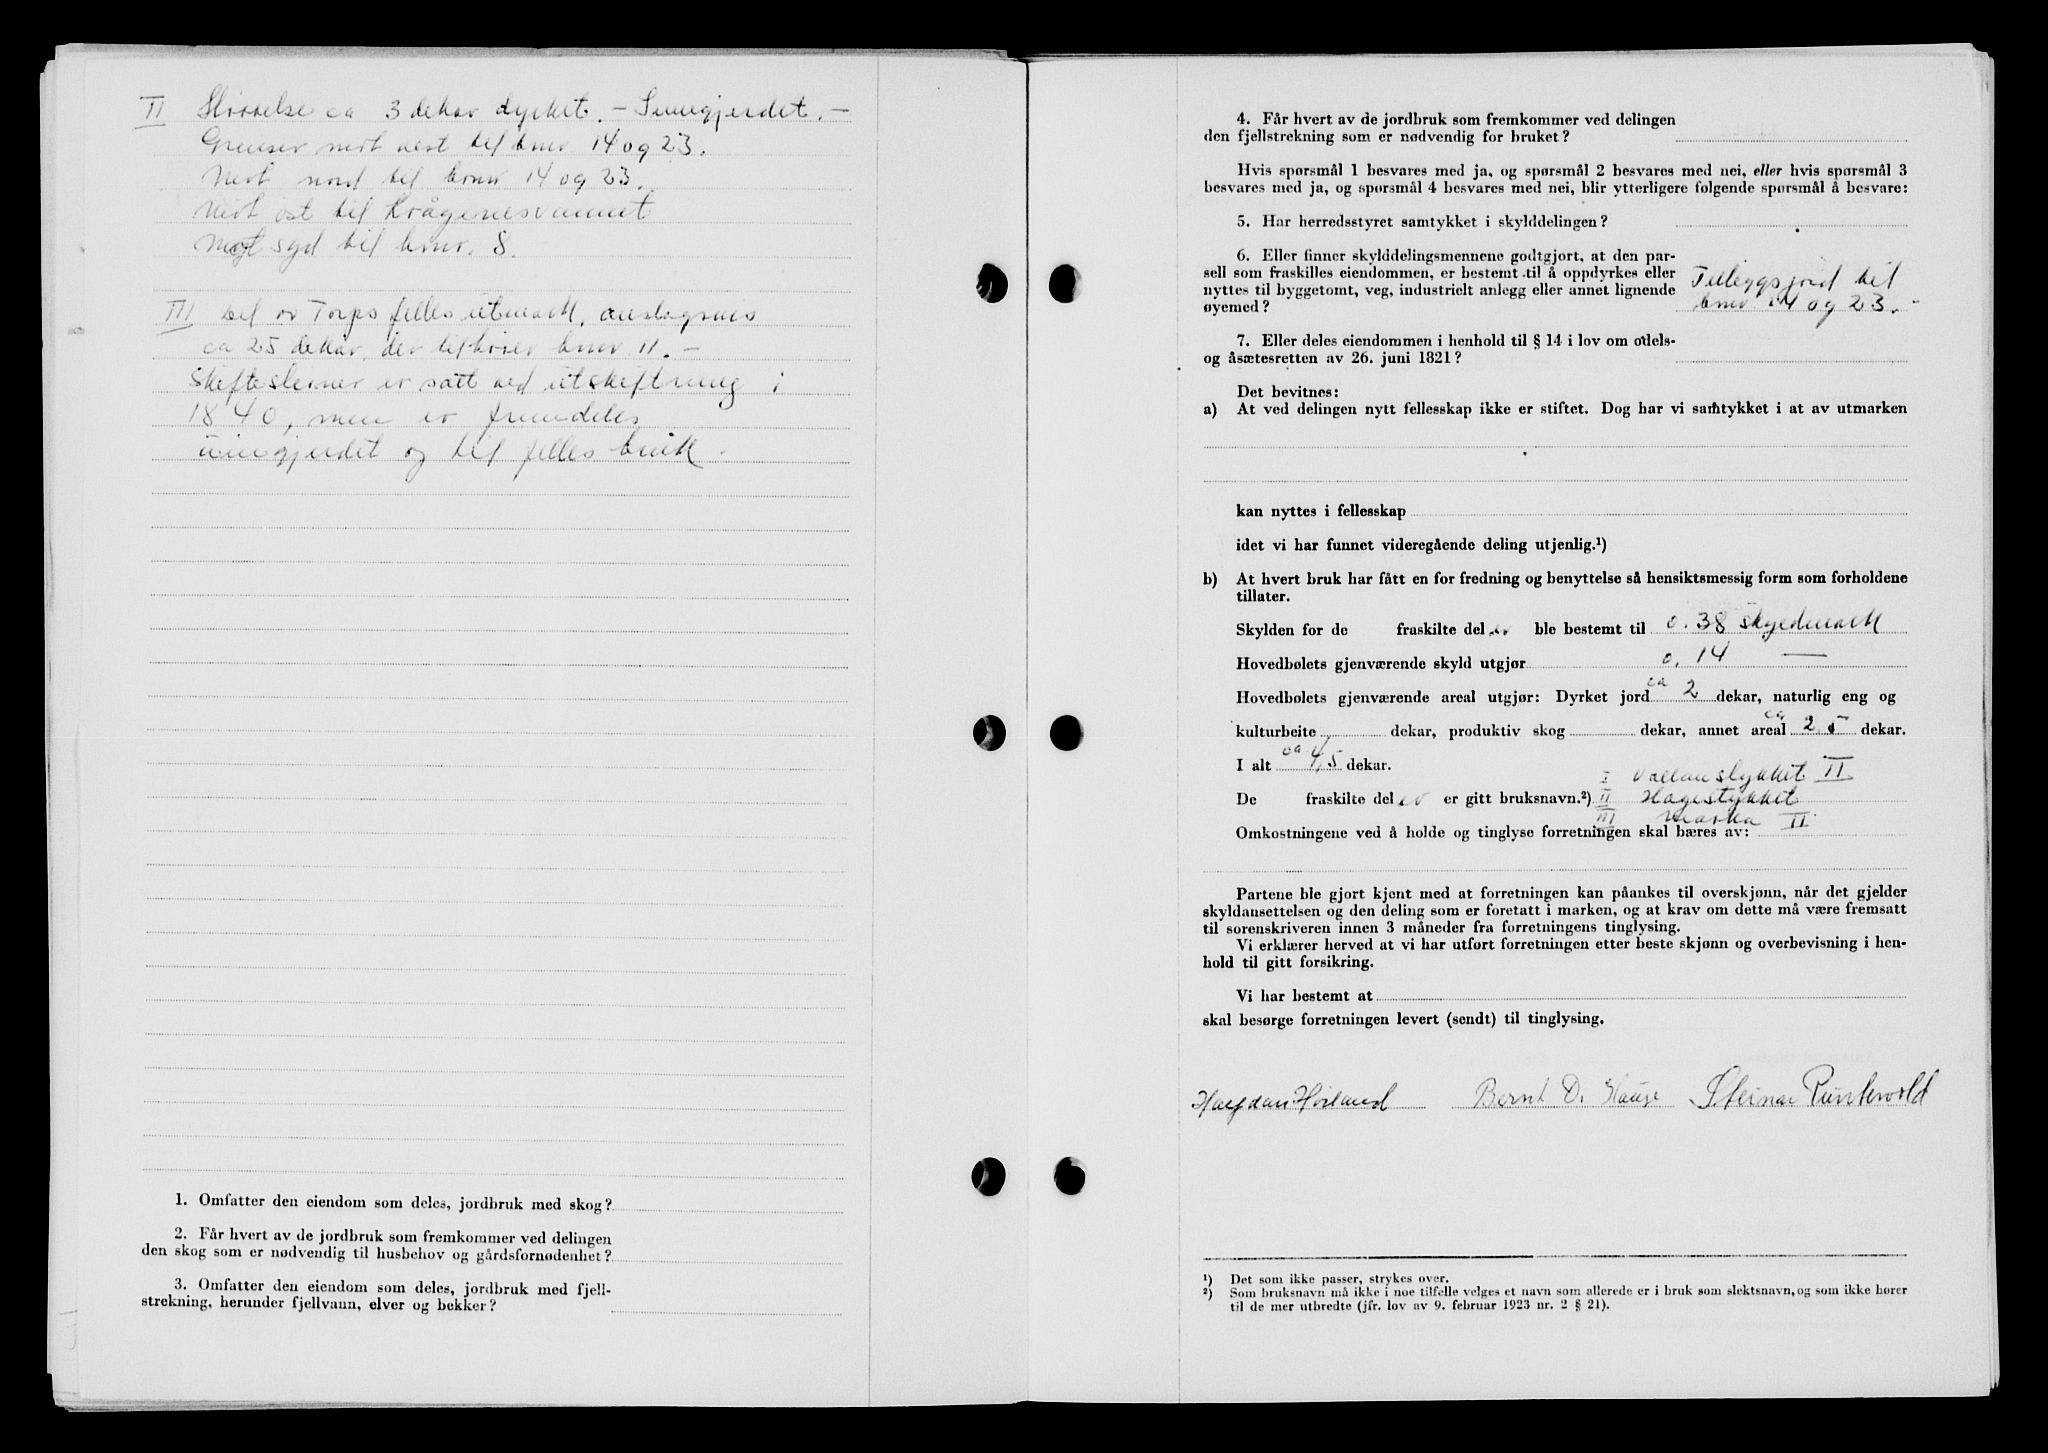 II Størrelse ca 3 dekar dyrket. – Innegjerdet. –
Grenser mot vest til bnr 14 og 23.
Mot nord til bnr 14 og 23.
Mot øst til Krågenesvannet
Mot syd til bnr. 8.
III Del av Torps felles utmark, anslagsvis
ca 25 dekar, der tilhører bnr 11. –
Skiftesteiner er satt ved utskiftning i
1840, men er fremdeles
uinngjerdet og til felles bruk.
1. Omfatter den eiendom som deles, jordbruk med skog?
2. Får hvert av de jordbruk som fremkommer ved delingen
den skog som er nødvendig til husbehov og gårdsfornødenhet?
3. Omfatter den eiendom som deles, jordbruk med fjell-
strekning, herunder fjellvann, elver og bekker?
4. Får hvert av de jordbruk som fremkommer ved delingen
den fjellstrekning som er nødvendig for bruket?
Hvis spørsmål 1 besvares med ja, og spørsmål 2 besvares med nei, eller hvis spørsmål 3
besvares med ja, og spørsmål 4 besvares med nei, blir ytterligere følgende spørsmål å besvare:
5. Har herredsstyret samtykket i skylddelingen?
6. Eller finner skylddelingsmennene godtgjort, at den par-
sell som fraskilles eiendommen, er bestemt til å oppdyrkes eller
nyttes til byggetomt, veg, industrielt anlegg eller annet lignende
øyemed?
Tilleggsjord til
bnr 14 og 23.
7. Eller deles eiendommen i henhold til § 14 i lov om odels-
og åsætesretten av 26. juni 1821?
Det bevitnes:
a) At ved delingen nytt fellesskap ikke er stiftet. Dog har vi samtykket i at av utmarken
kan nyttes i fellesskap
idet vi har funnet videregående deling utjenlig.¹)
b) At hvert bruk har fått en for fredning og benyttelse så hensiktsmessig form som forholdene
tillater.
Skylden for de fraskilte deler ble bestemt til 0.38 skyldmark
Hovedbølets gjenværende skyld utgjør 0.14 —
Hovedbølets gjenværende areal utgjør: Dyrket jord ca 2 dekar, naturlig eng og
kulturbeite dekar, produktiv skog dekar, annet areal ca 2.5 dekar.
I alt ca 4,5 dekar.
De fraskilte deler er gitt bruksnavn.²) I Vallanstykket II
II Hagestykket
III Marka II
Omkostningene ved å holde og tinglyse forretningen skal bæres av:
Partene ble gjort kjent med at forretningen kan påankes til overskjønn, når det gjelder
skyldansettelsen og den deling som er foretatt i marken, og at krav om dette må være fremsatt
til sorenskriveren innen 3 måneder fra forretningens tinglysing.
Vi erklærer herved at vi har utført forretningen etter beste skjønn og overbevisning i hen-
hold til gitt forsikring.
Vi har bestemt at
skal besørge forretningen levert (sendt) til tinglysing.
Halfdan Høiland Bernt D. Hauge Steinar Puntervold
¹) Det som ikke passer, strykes over.
²) Som bruksnavn må ikke i noe tilfelle velges et navn som allerede er i bruk som slektsnavn, og som ikke hører
til de mer utbredte (jfr. lov av 9. februar 1923 nr. 2 § 21).